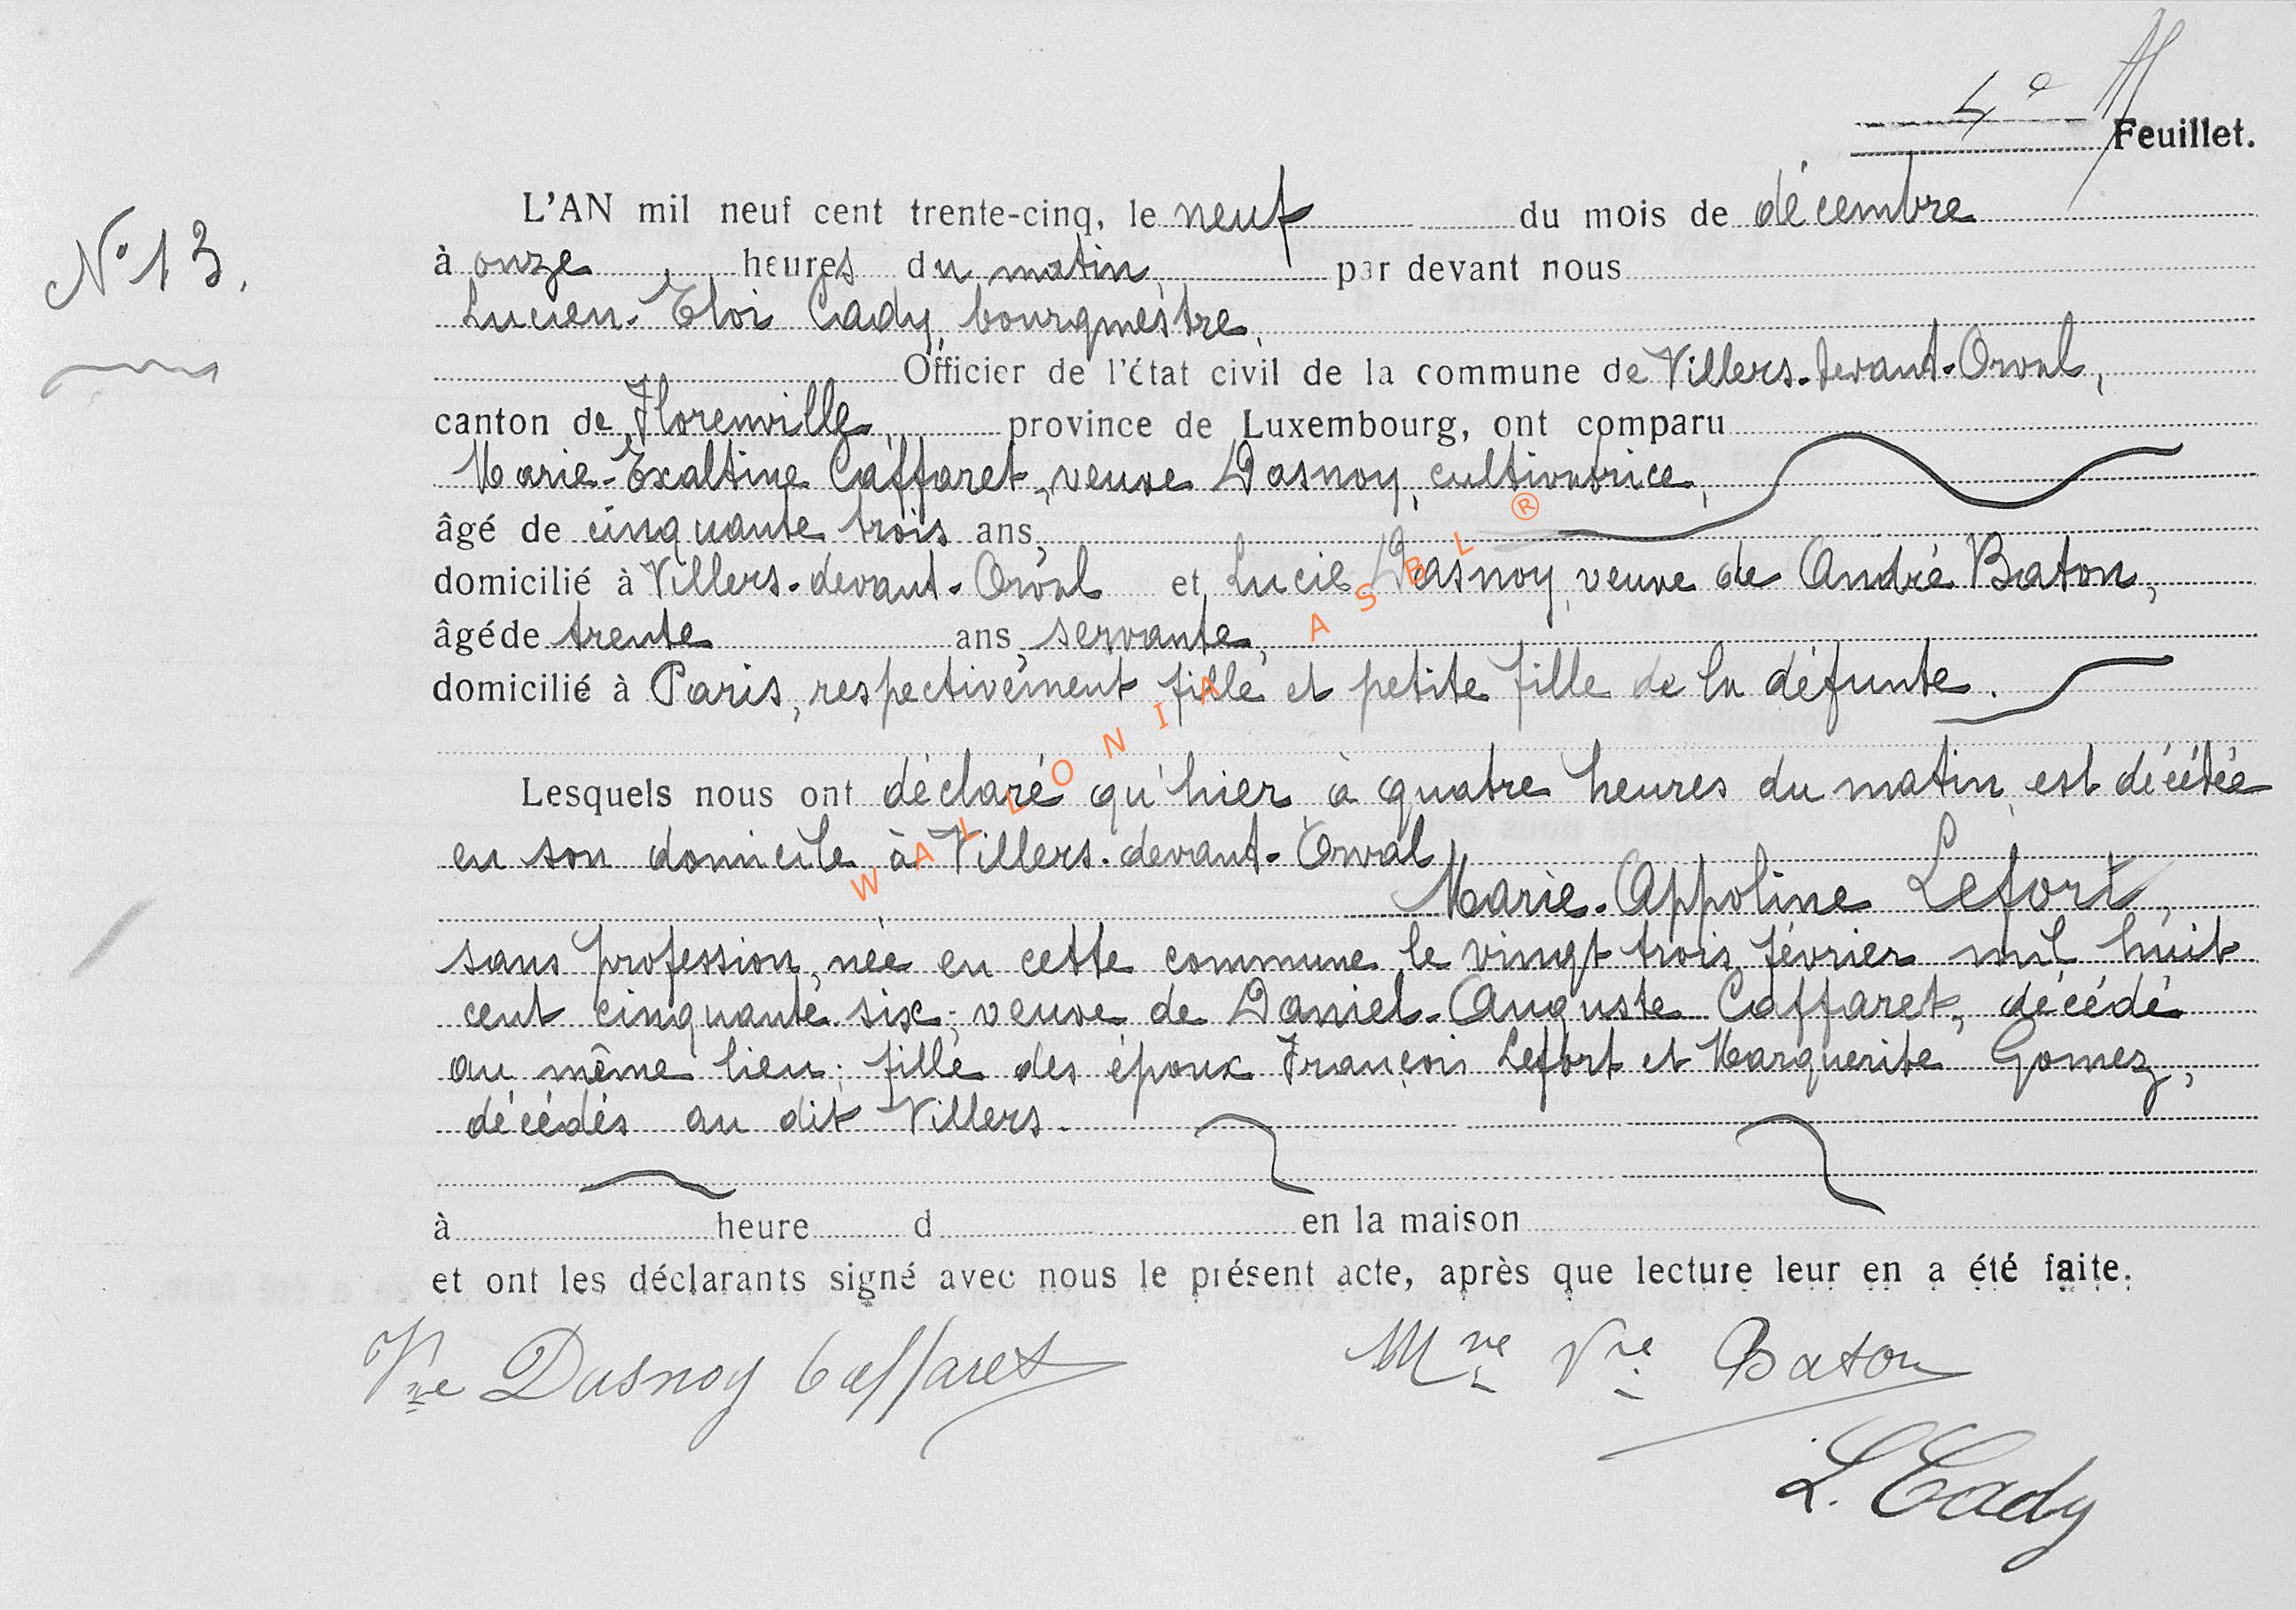 4e Feuillet.
N° 13.
L'AN mil neuf cent trente-cinq, le neuf du mois de décembre
à onze, heures du matin, par devant nous
Lucien-Eloi Cady, bourgmestre,
Officier de l'état civil de la commune de Villers-devant-Orval,
canton de Florenville, province de Luxembourg, ont comparu
Marie-Exaltine Caffaret, veuve Dasnoy, cultivatrice,
âgé de cinquante trois ans,
domicilié à Villers-devant-Orval et Lucie Dasnoy, veuve de André Baton,
âgé de trente ans, servante,
domicilié à Paris, respectivement fille et petite fille de la défunte.
Lesquels nous ont déclaré qu'hier, à quatre heures du matin, est décédée
en son domicile à Villers-devant-Orval,
Marie-Appoline Lefort,
sans profession, née en cette commune le vingt trois février mil huit
cent cinquante-six; veuve de Daniel-Auguste Caffaret, décédé
au même lieu; fille des époux François Lefort et Marguerite Gomez,
décédés au dit Villers.
à heure d en la maison
et ont les déclarants signé avec nous le présent acte, après que lecture leur en a été faite.
Vve Dasnoy Caffaret Mme Vve Baton
L. Cady
WALLONIA ASBL ®